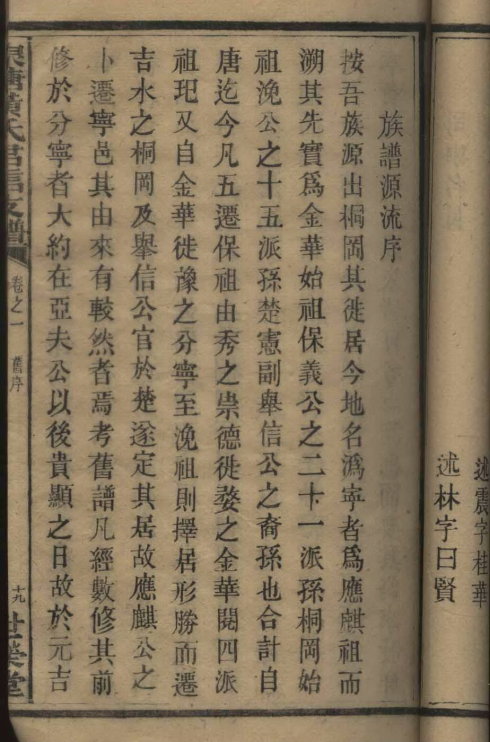 述震字桂華
述林字曰賢
族譜源流序
按吾族源出桐岡其徙居今地名溈寧者爲應麒祖而
溯其先實爲金華始祖保義公之二十一派孫桐岡始
祖浼公之十五派孫楚憲副舉信公之裔孫也合計自
唐迄今凡五遷保祖由秀之崇德徙婺之金華閱四派
祖玘又自金華徙豫之分寧至浼祖則擇居形勝而遷
吉水之桐岡及舉信公官於楚遂定其居故應麒公之
卜遷寧邑其由來有較然者焉考舊譜凡經數修其前
修於分寧者大約在亞夫公以後貴顯之日故於元吉
塘黃氏君信支譜
卷之一
舊序
十九
世榮堂